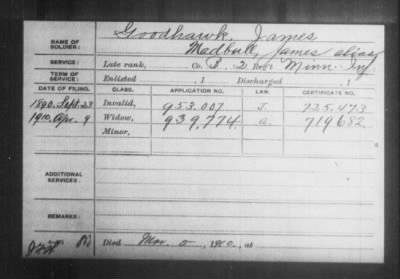 Goodhawk, James
NAME OF SOLDIER: Madbull, James alias
SERVICE: Late rank, Co. B, 2 Reg't Minn. Inf
TERM OF SERVICE: Enlisted , 1 Discharged , 1
DATE OF FILING. CLASS. APPLICATION NO. LAW. CERTIFICATE NO.
1890. Sept. 23 Invalid, 953.007 J. 725.473
1910. Apr. 9 Widow, 939.774 a. 719682
Minor,
ADDITIONAL SERVICES:
REMARKS:
Died Mar. , 1910, at